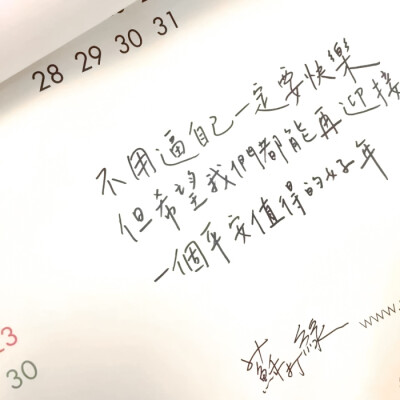 28 29 30 31
不用逼自己一定要快樂
但希望我們都能再迎接
一個平安值得的好年
蘇打綠
www.
3
30